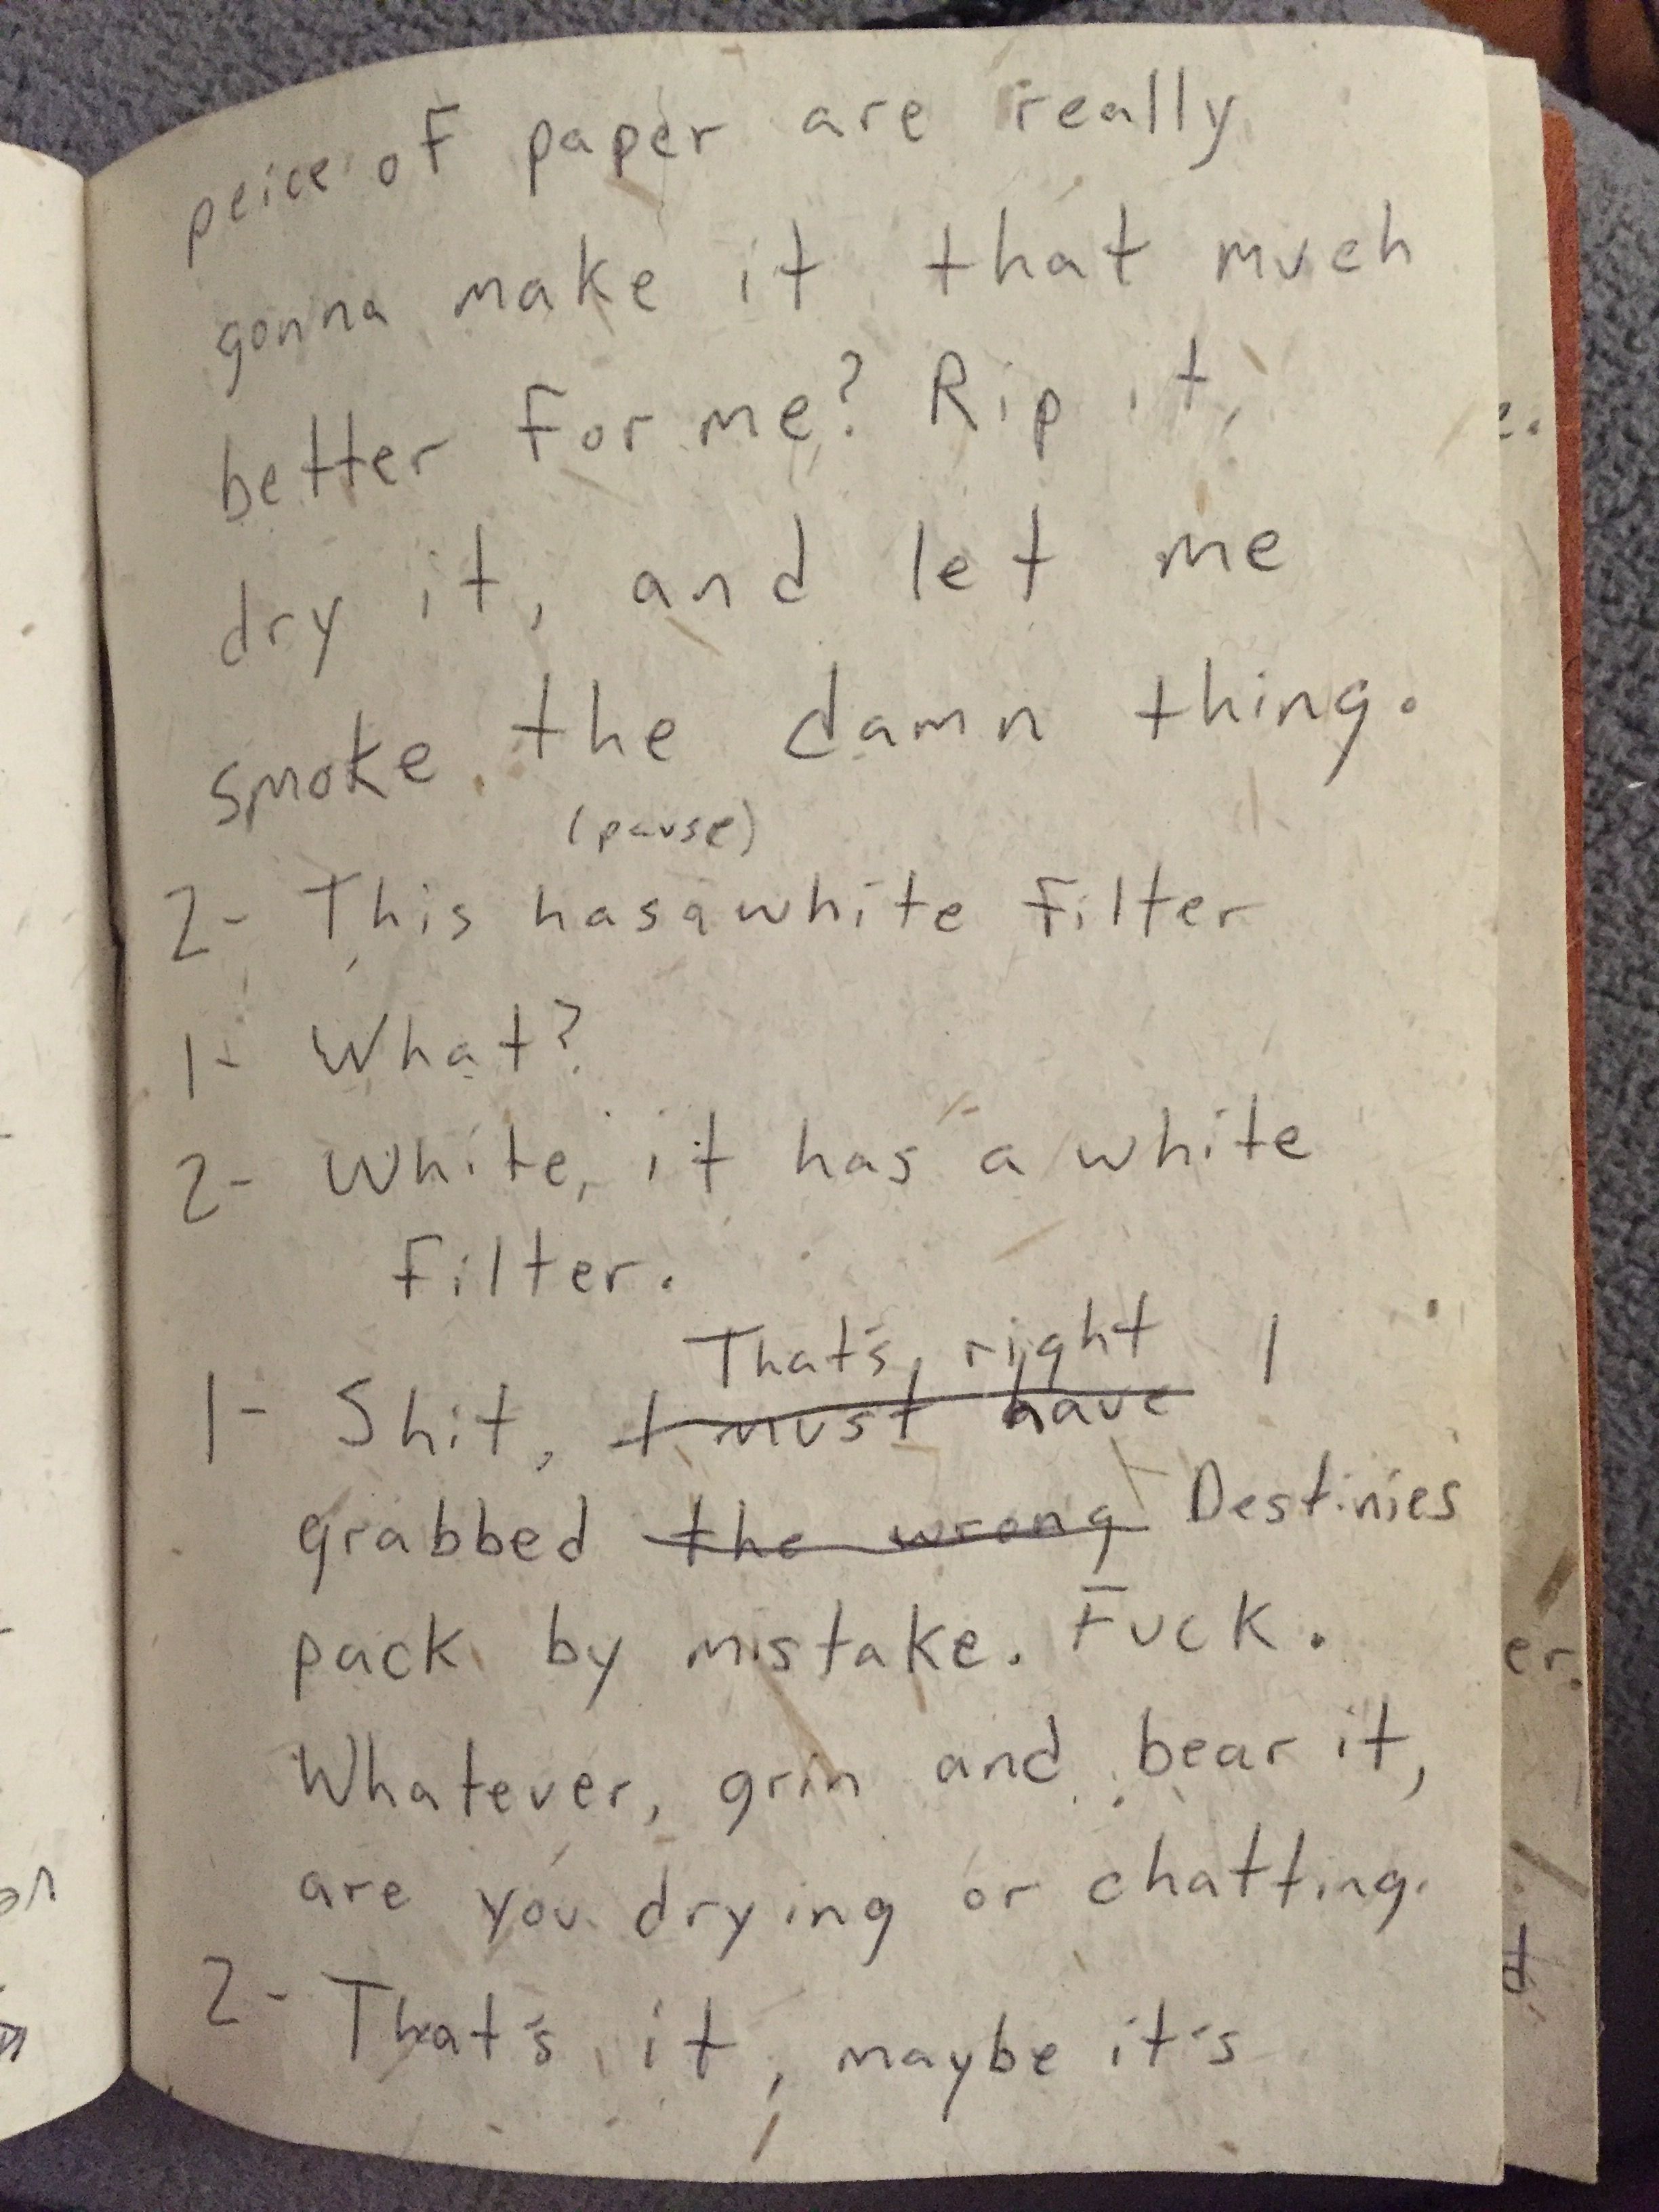 peice of paper are really
gonna make it that much
better for me? Rip it,
dry it, and let me
smoke the damn thing.
(pause)
2- This has a white filter
1- What?
2- White, it has a white
filter.
That's right I
1- Shit, I must have
grabbed the wrong Destinies
pack by mistake. Fuck.
Whatever, grin and bear it,
are you drying or chatting.
2- That's it, maybe it's
e.
er.